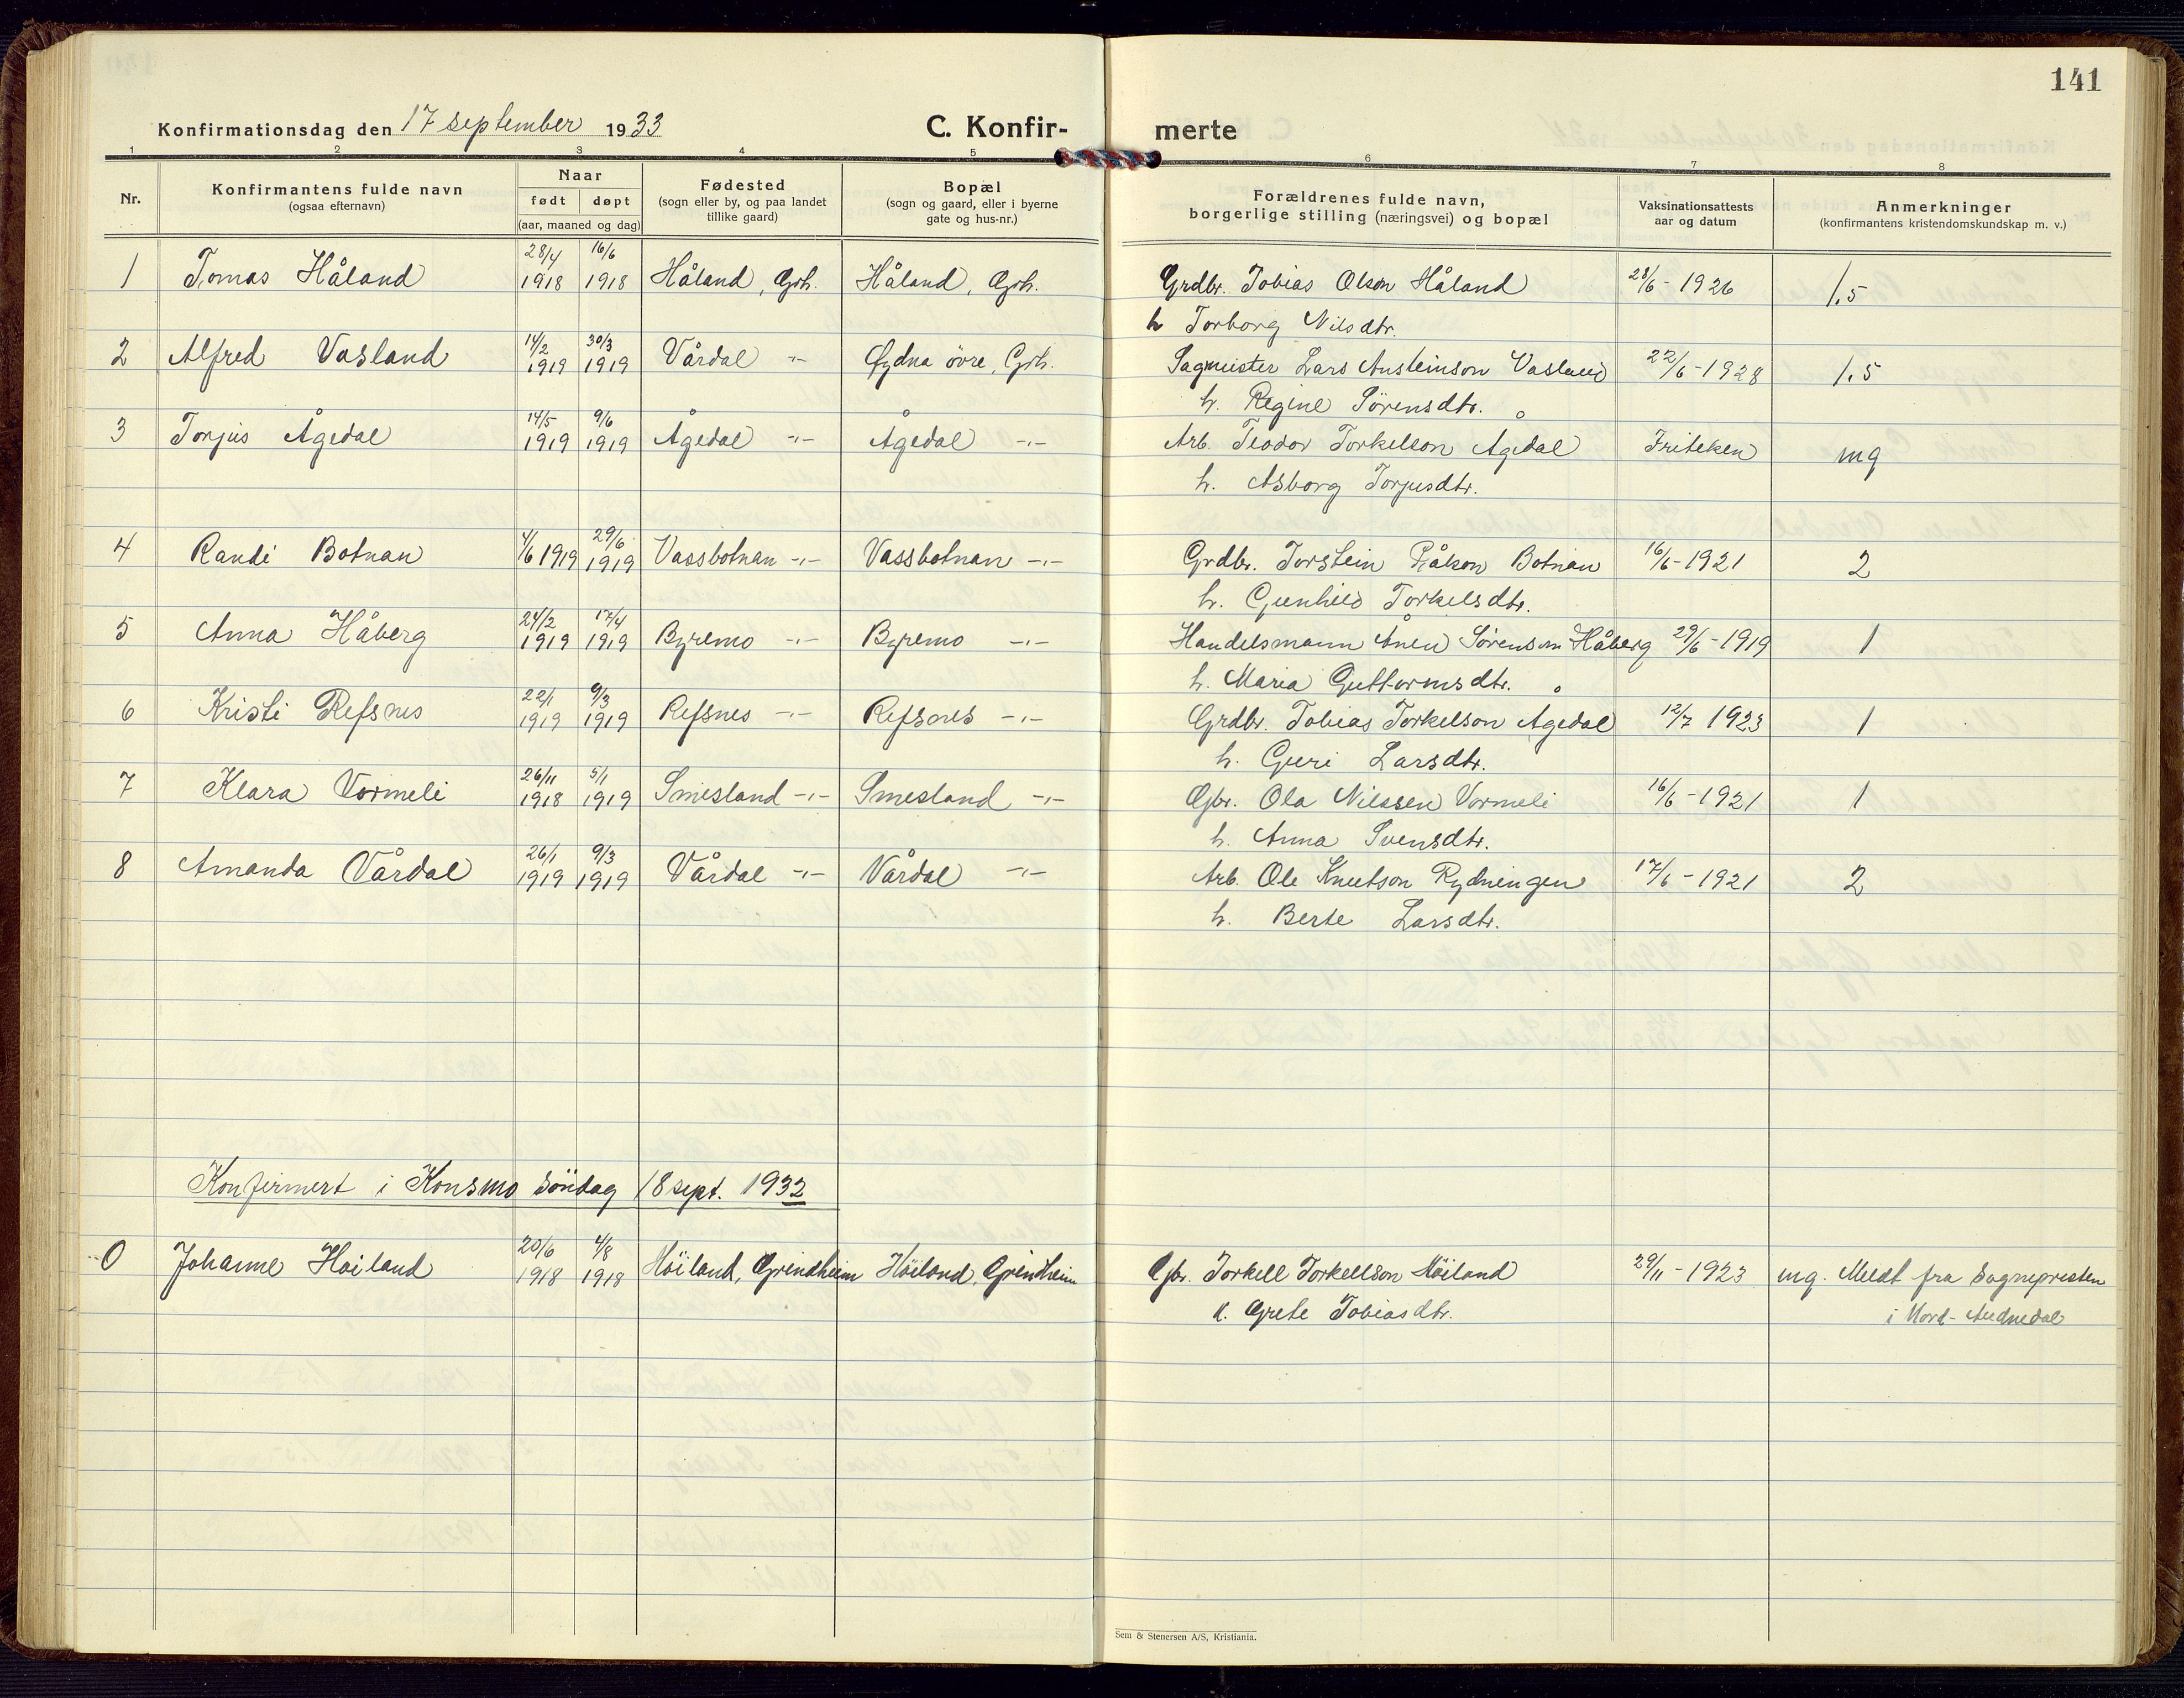 141
Konfirmationsdag den 17 september 1933 C. Konfir- merte
1 2 3 4 5 6 7 8
Nr.
Konfirmantens fulde navn
(ogsaa efternavn)
Naar
født døpt
(aar, maaned og dag)
Fødested
(sogn eller by, og paa landet
tillike gaard)
Bopæl
(sogn og gaard, eller i byerne
gate og hus-nr.)
Forældrenes fulde navn,
borgerlige stilling (næringsvei) og bopæl
Vaksinationsattests
aar og datum
Anmerkninger
(konfirmantens kristendomskundskap m. v.)
1 Tomas Håland 28/4 1918 16/6 1918 Håland, Grh. Håland, Grh. Grdbr. Tobias Olson Håland 28/6 - 1926 1.5
h Torborg Nilsdtr.
2 Alfred Vasland 14/2 1919 30/3 1919 Vårdal -"- Gydna övre, Grh. Sagmester Lars Austeinson Vasland 22/6 - 1928 1.5
h. Regine Sörensdtr.
3 Torjus Ågedal 14/5 1919 9/6 1919 Ågedal -"- Ågedal -"- Arb. Teodor Torkelson Ågedal Friteken mg
h. Asborg Torjusdtr.
4 Randi Botnan 4/6 1919 29/6 1919 Vassbotnan -"- Vassbotnan -"- Grdbr. Torstein Pålson Botnan 16/6 - 1921 2
h. Gunhild Torkelsdtr.
5 Anna Håberg 24/2 1919 17/4 1919 Byremo -"- Byremo -"- Handelsmann Ånen Sörenson Håberg 29/6 - 1919 1
h. Maria Guttormsdtr.
6 Kristi Refsnes 22/1 1919 9/3 1919 Refsnes -"- Refsnes -"- Grdbr. Tobias Torkelson Ågedal 12/7 1923 1
h. Guri Larsdtr.
7 Klara Vormeli 26/11 1918 5/1 1919 Smesland -"- Smesland -"- Gbr. Ola Nilssen Vormeli 16/6 - 1921 1
h. Anna Svensdtr.
8 Amanda Vårdal 26/1 1919 9/3 1919 Vårdal -"- Vårdal -"- Arb. Ole Knutson Rydningen 17/6 - 1921 2
h. Berte Larsdtr.
Konfirmert i Konsmo söndag 18 sept. 1932
0 Johanne Höiland 20/6 1918 4/8 1918 Höiland, Grindheim Höiland, Grindheim Gbr. Torkell Torkellson Höiland 29/11 - 1923 mg. Meldt fra Sognepresten
k. Grete Tobiasdtr. i Nord-Audnedal
Sem & Stenersen A/S, Kristiania.